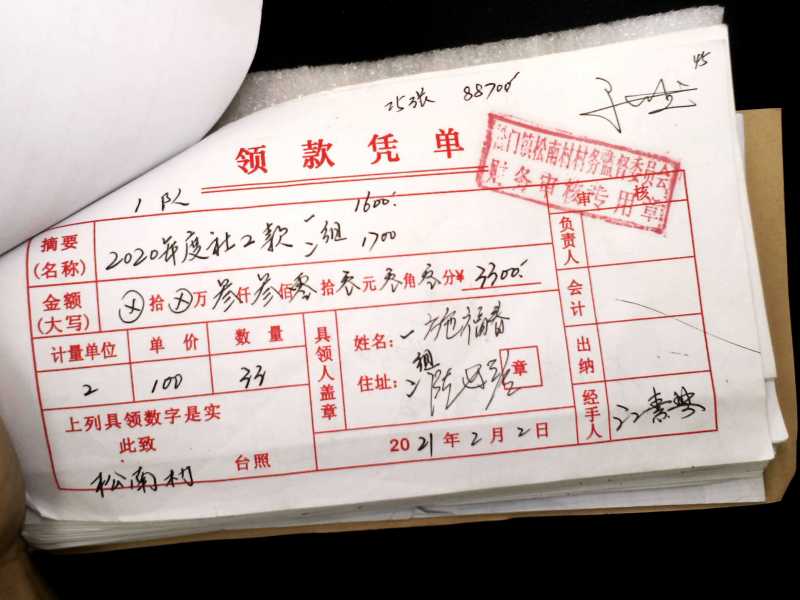 45
25张 88700
领款凭单
门镇松南村村务监督委员会
财务审核专用章
1队
摘要
(名称)
2020年度社工款 一 二 组 1600. 1700
审核
负责人
金额
(大写)
⊗拾⊗万叁仟叁佰零拾零元零角零分¥ 3300.
会计
计量单位 单价 数量
2 100 33
具领人盖章
姓名: 一 施福春
住址: 二 组 章
出纳
经手人
上列具领数字是实
此致
松南村 台照
2021年2月2日